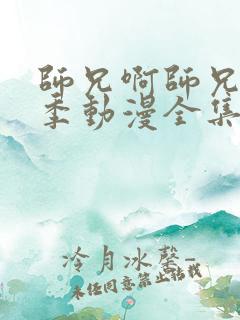 師兄啊師兄
季動漫全集
冷月冰磬-
未经同意禁止转载